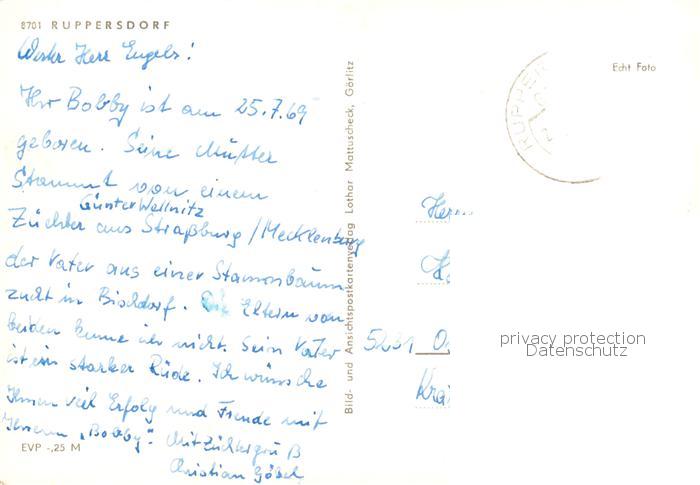 8701 RUPPERSDORF
Werter Herr Engels!
Ihr Bobby ist am 25.7.69
geboren. Seine Mutter
stammt von einem
Günter Wellnitz
Züchter aus Straßburg/Mecklenburg
der Vater aus einer Stammbaum-
zucht in Bischdorf. Die Eltern von
beiden kenne ich nicht. Sein Vater
ist ein starker Rüde. Ich wünsche
Ihnen viel Erfolg und Freude mit
Ihrem "Bobby". Mit Züchtergruß
Christian Göbel
EVP -,25 M
Bild- und Ansichtspostkartenverlag Lothar Mattuscheck, Görlitz
Echt Foto
RUPPER
Herrn
5231
privacy protection
Datenschutz